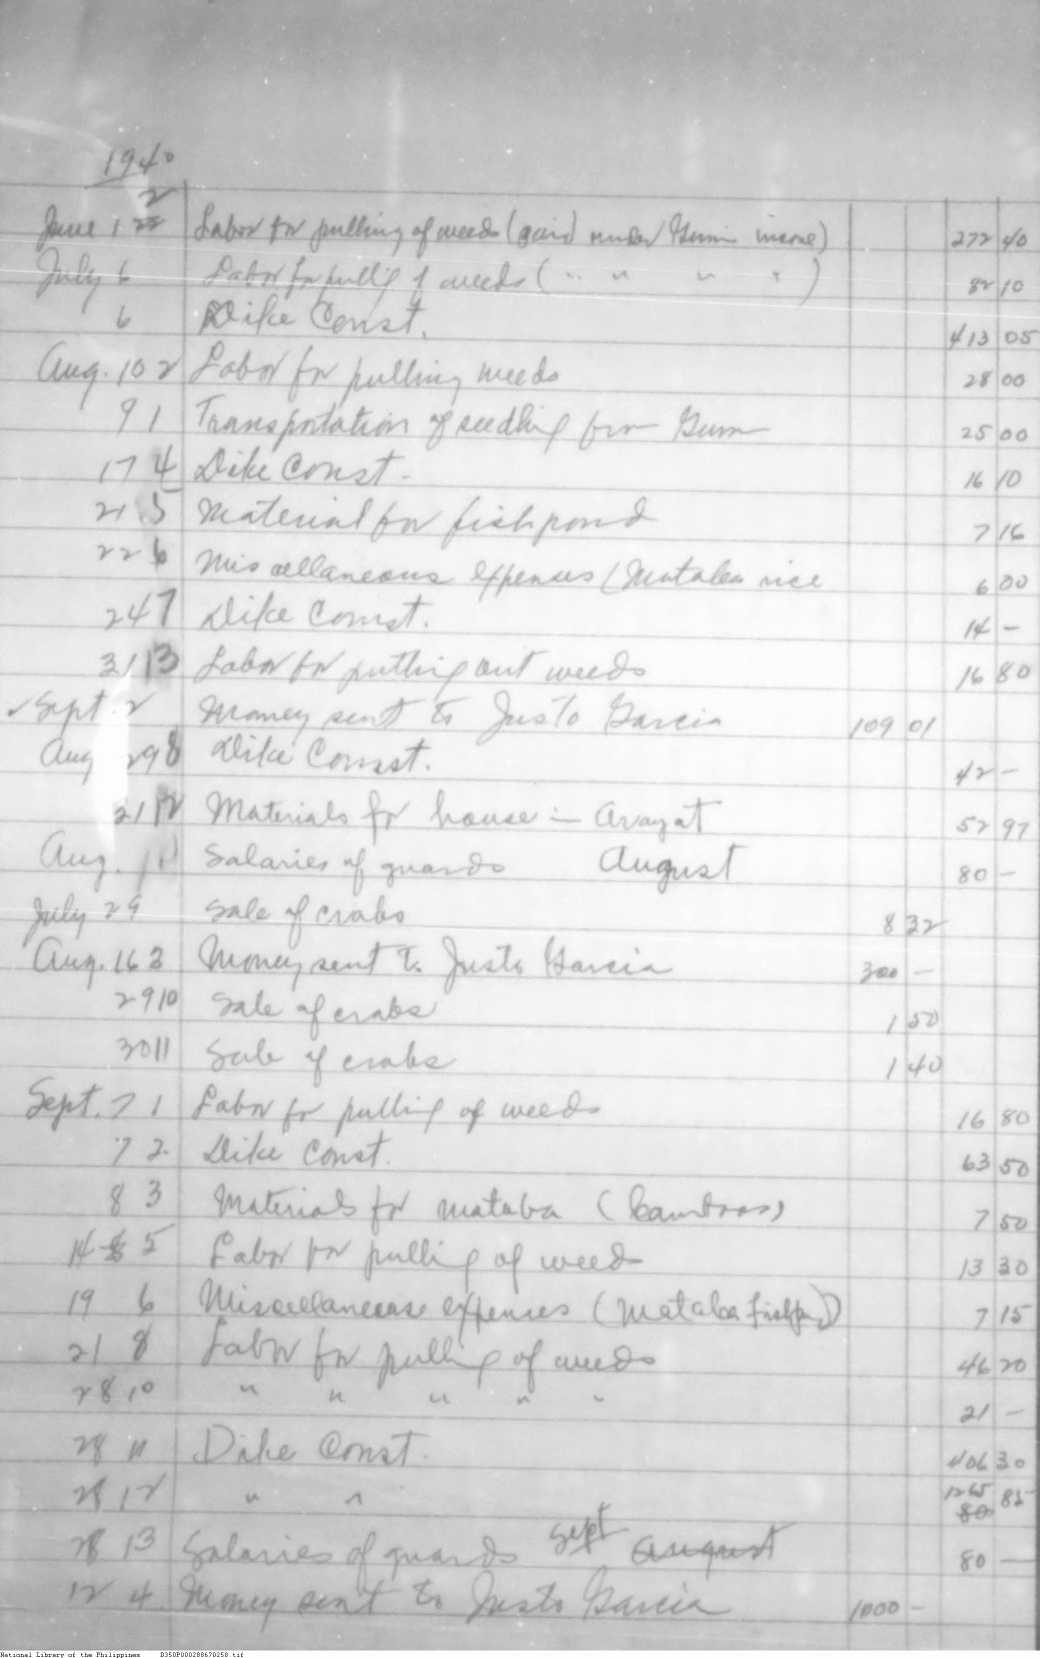 1940
2
June 1 22 Labor for pulling of weeds (paid under Gumi income) 272 40
July 6 Labor for pullig of weeds ( " " " " ) 82 10
6 Dike Const. 413 05
Aug. 10 2 Labor for pulling weeds 28 00
9 1 Transportation of seedling from Gumi 25 00
17 4 Dike Const. 16 10
21 5 Material for fishpond 7 16
22 6 Miscellaneous expenses (Mataba rice 6 00
24 7 Dike Const. 14 -
31 13 Labor for putting out weeds 16 80
Sept. 2 Money sent to Justo Garcia 109 01
Aug 29 8 Dike Const. 42 -
31 12 Materials for house in Arayat 52 97
Aug. Salaries of guards August 80 -
July 29 Sale of crabs 8 32
Aug. 16 3 Money sent to Justo Garcia 300 -
29 10 Sale of crabs 1 50
30 11 Sale of crabs 1 40
Sept. 7 1 Labor for pulling of weeds 16 80
7 2 Dike Const. 63 50
8 3 Materials for mataba 7 50
14 5 Labor for pulling of weeds 13 30
19 6 Miscellaneous expenses (Mataba fishpond) 7 15
21 8 Labor for pulling of weeds 46 20
28 10 " " " " " 21 -
28 11 Dike Const. 406 30
28 12 " " 1265 80 85
28 13 Salaries of guards Sept August 80 -
12 4 Money sent to Justo Garcia 1000 -
National Library of the Philippines D350P000288670258.tif